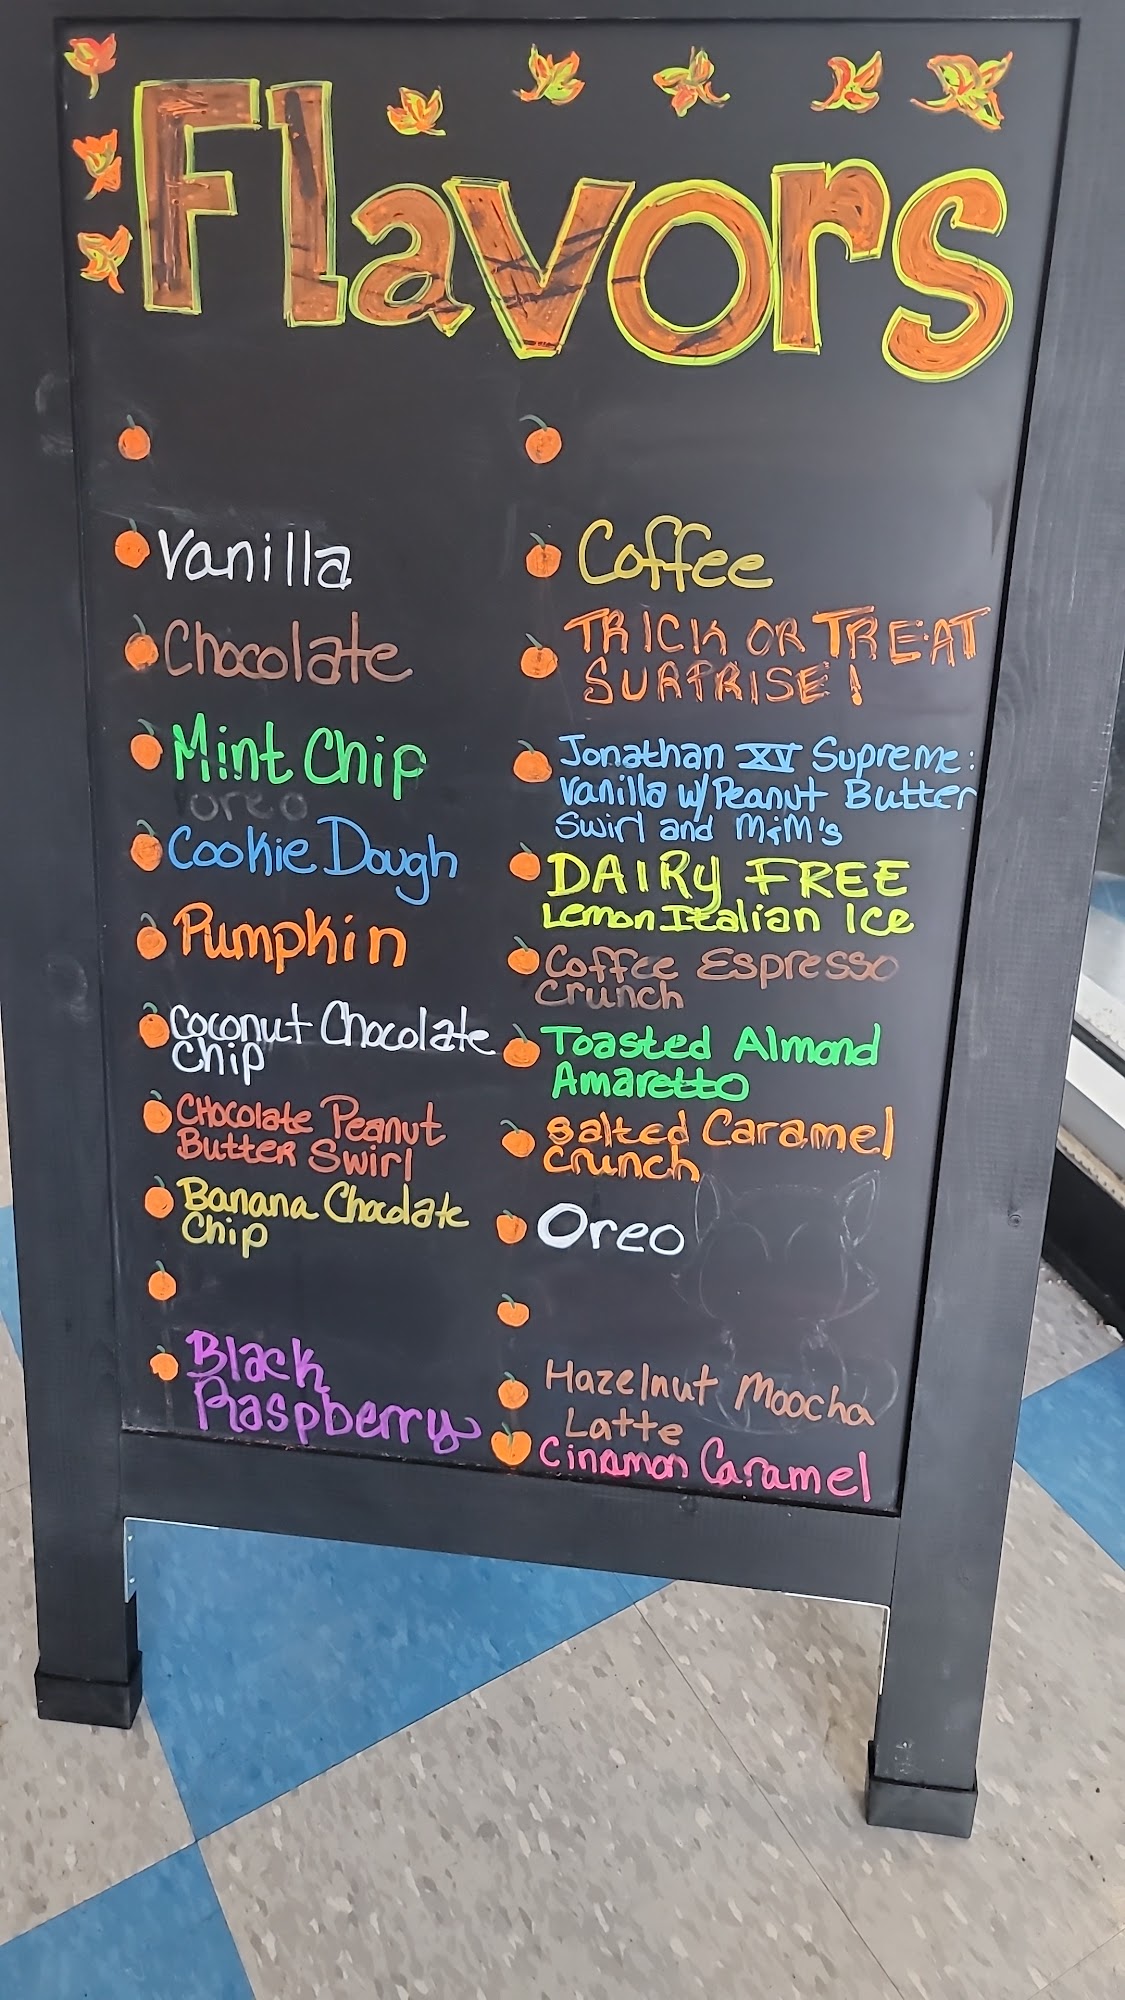 Flavors
Vanilla
Chocolate
Mint Chip
oreo
Cookie Dough
Pumpkin
Coconut Chocolate
Chip
Chocolate Peanut
Butter Swirl
Banana Chocolate
Chip
Black
Raspberry
Coffee
TRICK OR TREAT
SURPRISE!
Jonathan XV Supreme:
Vanilla w/Peanut Butter
Swirl and M&M's
DAIRY FREE
Lemon Italian Ice
Coffee Espresso
Crunch
Toasted Almond
Amaretto
Salted Caramel
Crunch
Oreo
Hazelnut Moocha
Latte
Cinamon Caramel